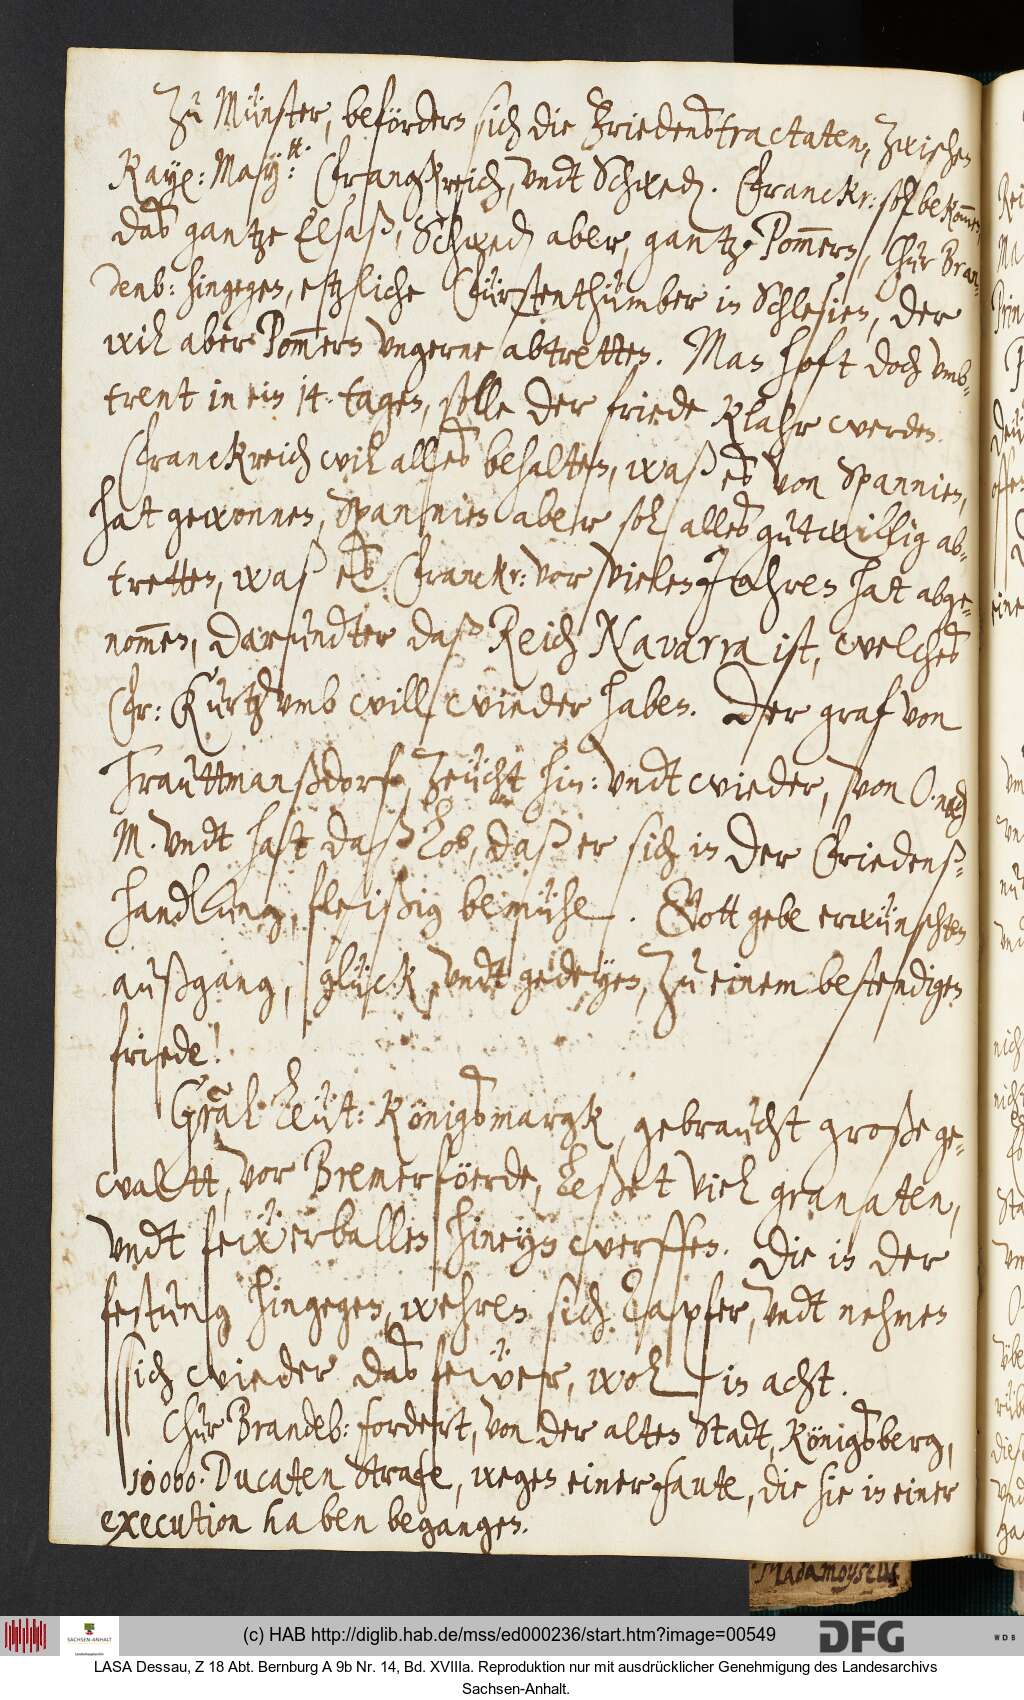 Zu Münster, befördern sich die Friedenstractaten, zwischen
Kays: May: tt: Franckreich, undt Schweden. Franckr: soll bekommen
das gantze Elsaß, Schweden aber, gantz Pom̄ern, Chur Bran-
denb: hingegen, etzliche Fürstenthümber in Schlesien, der
will aber Pom̄ern ungerne abtretten. Man hoft doch umb-
trent in ein 14. tagen, solle der friede klahr werden.
Franckreich will alles behalten, waß es von Spannien,
hat gewonnen, Spannien aber soll alles gutwillig ab-
tretten, waß es Franckr: vor vielen Jahren hat abge-
nom̄en, darundter daß Reich Navarra ist, welches
Fr: kurtzumb will wieder haben. Der graf von
Trauttmanßdorf, zeücht hin: undt wieder, von O. nach
M. undt hatt daß Lob, daß er sich in der Friedenß-
handlung, fleißig bemühe. Gott gebe erwünschten
außgang, glück, undt gedeyen, zu einem bestendigen
friede!
Gn̄al Leüt: Königsmargk, gebraucht große ge-
waltt, vor Bremerföerde, leßet viel granaten,
undt feẅerballen hineyn werffen. Die in der
festung hingegen, wehren sich tapfer, undt nehmen
sich wieder das feẅer, wol in acht.
Chur Brandeb: fordert, von der alten Stadt, Königsberg,
10000. Ducaten Strafe, wegen einer faute, die sie in einer
execution haben begangen.
Madamoyselle
(c) HAB http://diglib.hab.de/mss/ed000236/start.htm?image=00549
SACHSEN-ANHALT
DFG
WDB
LASA Dessau, Z 18 Abt. Bernburg A 9b Nr. 14, Bd. XVIIIa. Reproduktion nur mit ausdrücklicher Genehmigung des Landesarchivs
Sachsen-Anhalt.